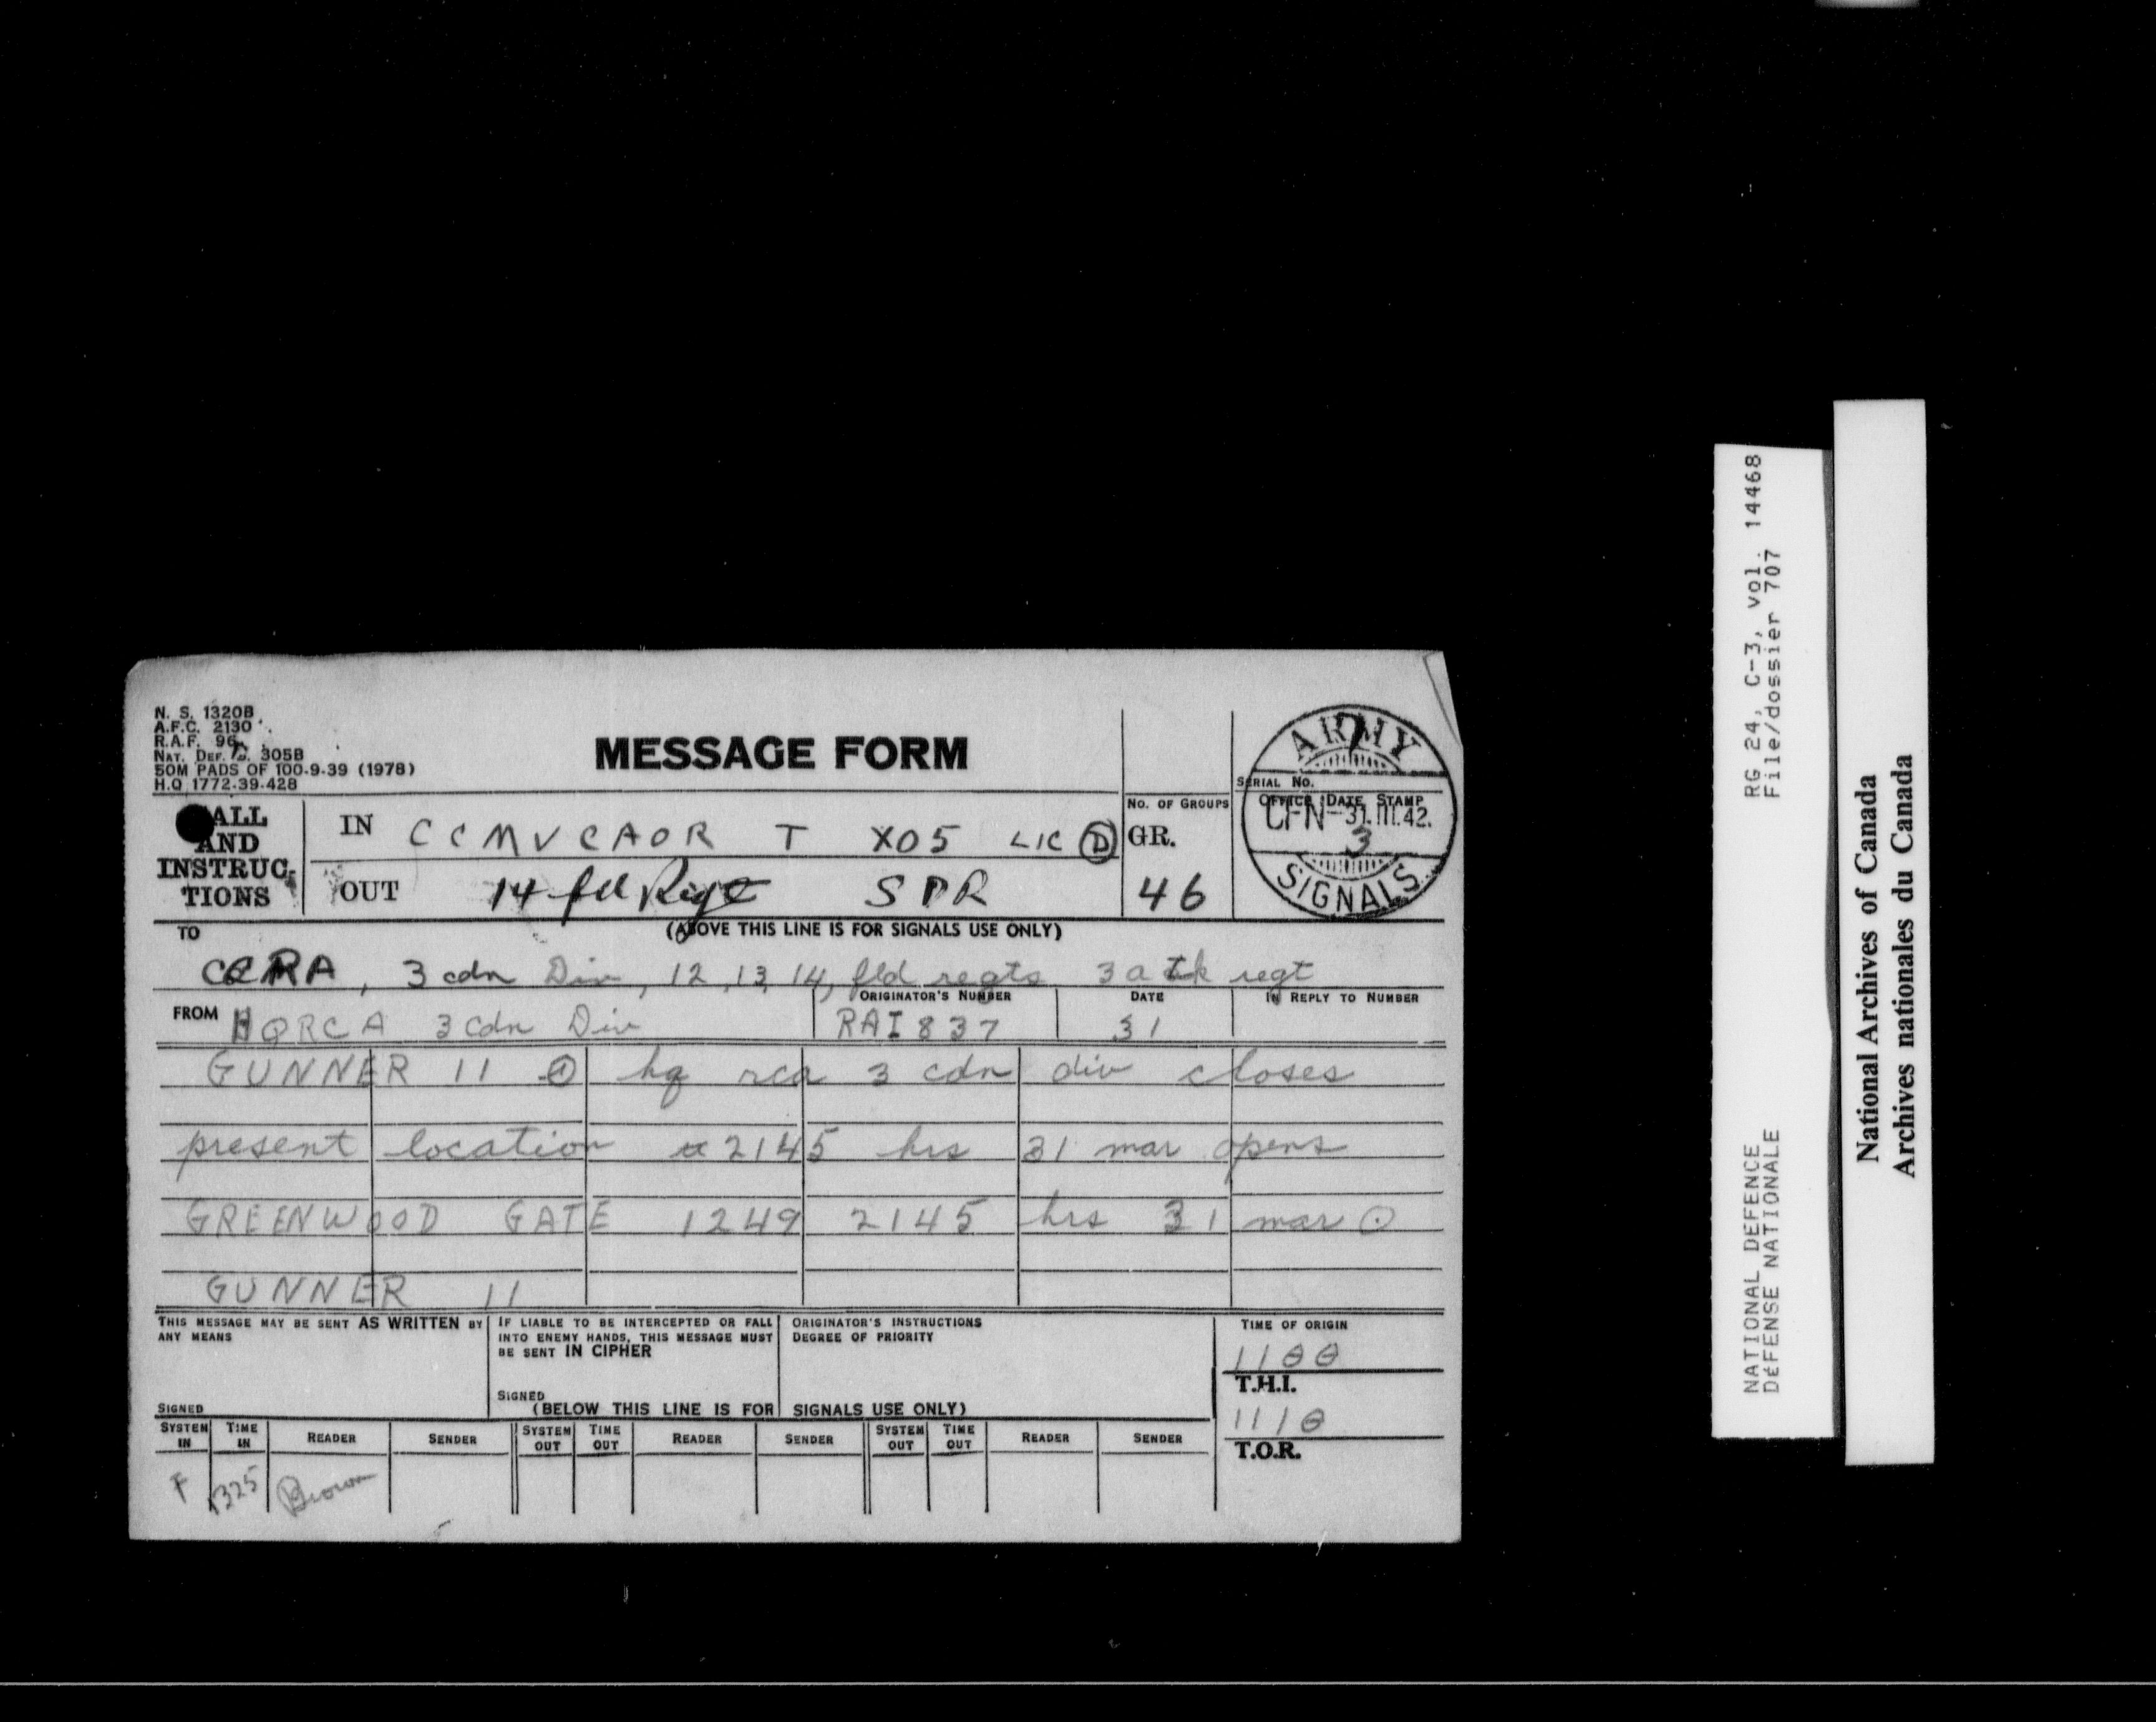 N. S. 1320B
A.F.C. 2130
R.A.F. 96
NAT. DEF. 305B
50M PADS OF 100-9-39 (1978)
H.Q 1772-39-428
MESSAGE FORM
SERIAL NO.
ARMY
OFFICE DATE STAMP
CFN-31.III.42.
3
SIGNALS
ALL
AND
INSTRUC-
TIONS
IN CCMVCAOR T X05 LIC D
OUT 14 fld Rige SDR
NO. OF GROUPS
GR.
46
(ABOVE THIS LINE IS FOR SIGNALS USE ONLY)
TO
CCRA, 3 cdn Div, 12, 13, 14, fld regts 3 a tk regt
FROM HQRCA 3 Cdn Div
ORIGINATOR'S NUMBER
RAI 837
DATE
31
IN REPLY TO NUMBER
GUNNER 11 hq rca 3 cdn div closes
present location 2145 hrs 31 mar opens
GREENWOOD GATE 1249 2145 hrs 31 mar
GUNNER 11
THIS MESSAGE MAY BE SENT AS WRITTEN BY
ANY MEANS
SIGNED
IF LIABLE TO BE INTERCEPTED OR FALL
INTO ENEMY HANDS, THIS MESSAGE MUST
BE SENT IN CIPHER
SIGNED
ORIGINATOR'S INSTRUCTIONS
DEGREE OF PRIORITY
TIME OF ORIGIN
1100
T.H.I.
1110
T.O.R.
(BELOW THIS LINE IS FOR SIGNALS USE ONLY)
SYSTEM IN TIME IN READER SENDER SYSTEM OUT TIME OUT READER SENDER SYSTEM OUT TIME OUT READER SENDER
F 1325 Brown
RG 24, C-3, vol. 14468
File/dossier 707
NATIONAL DEFENCE
DÉFENSE NATIONALE
National Archives of Canada
Archives nationales du Canada